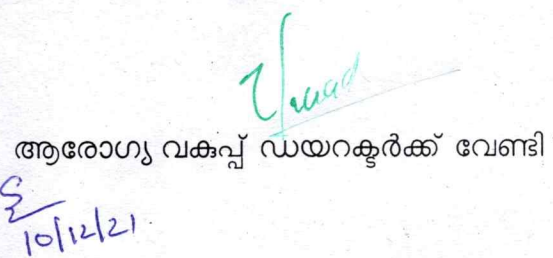 ആരോഗ്യ വകുപ്പ് ഡയറക്ടർക്ക് വേണ്ടി
10/12/21